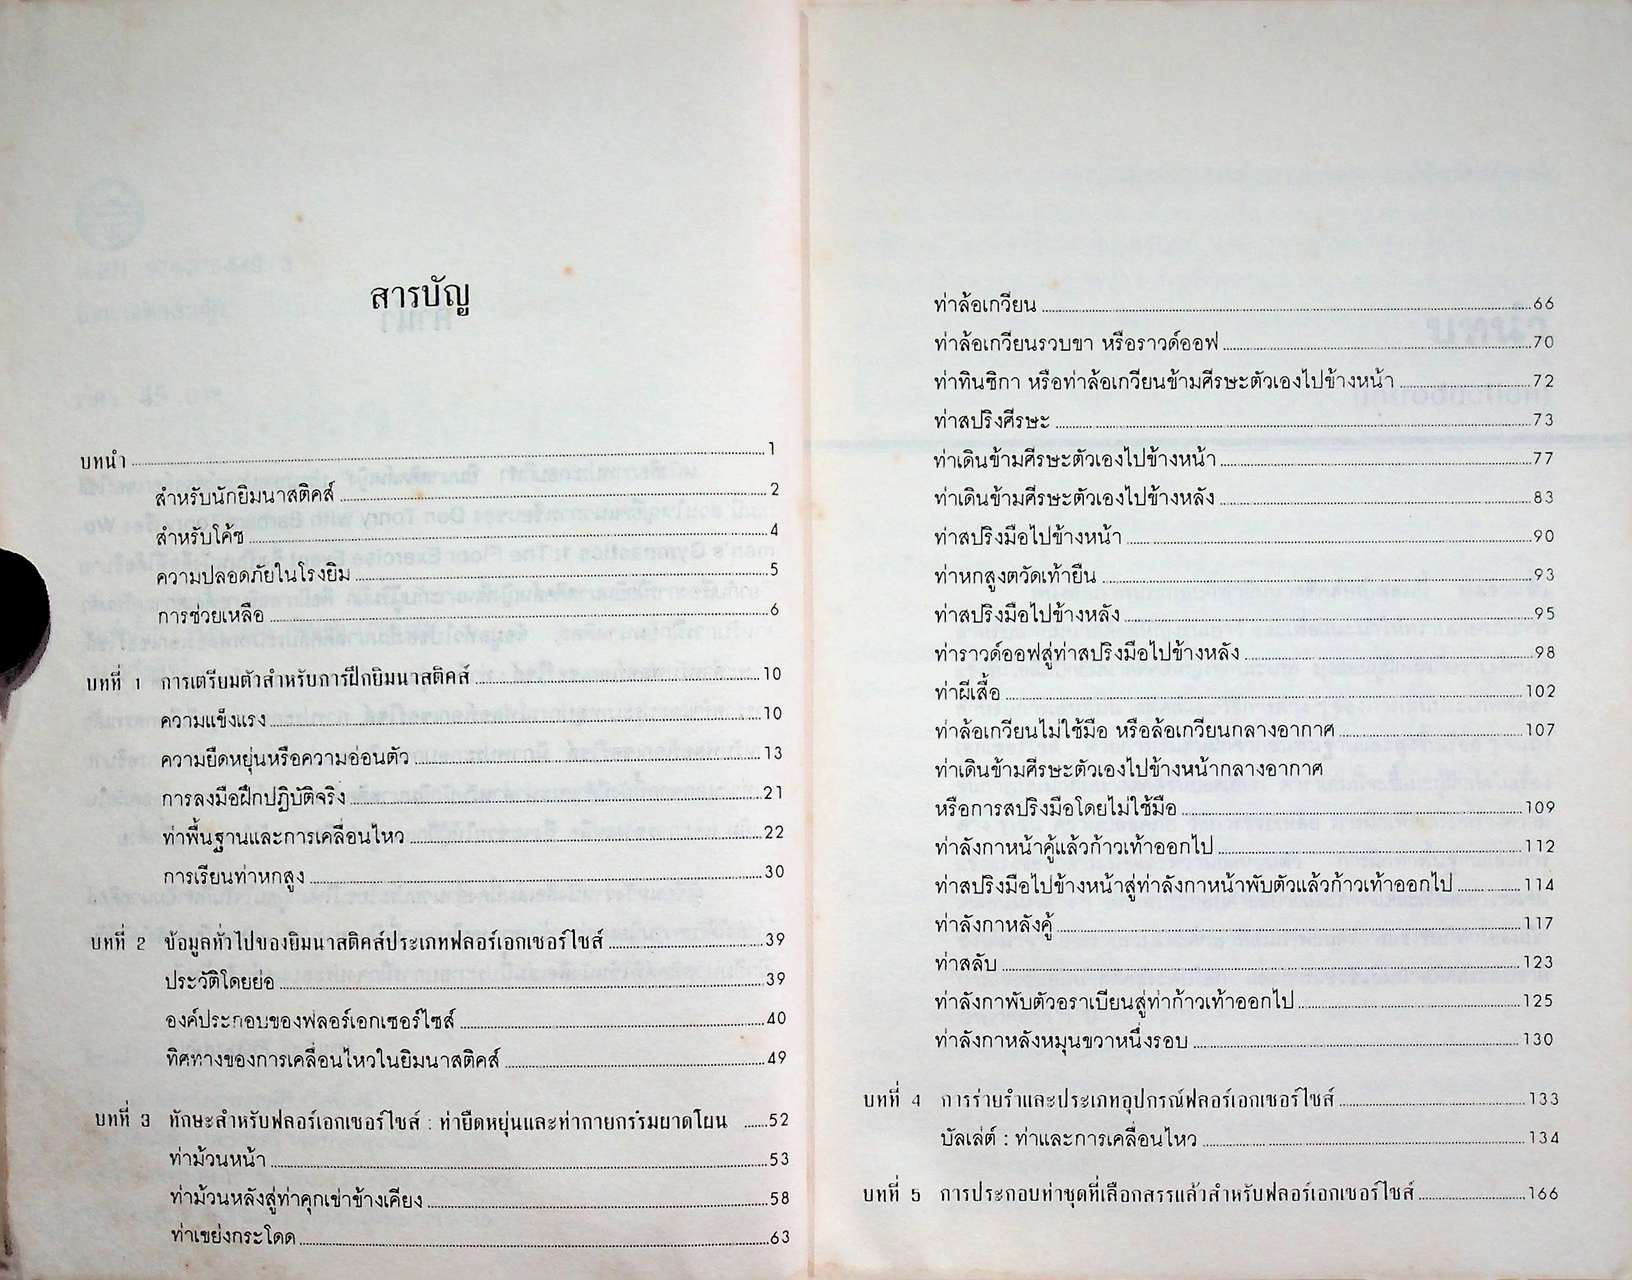 สารบัญ
บทนำ 1
สำหรับนักยิมนาสติคส์ 2
สำหรับโค้ช 4
ความปลอดภัยในโรงยิม 5
การช่วยเหลือ 6
บทที่ 1 การเตรียมตัวสำหรับการฝึกยิมนาสติคส์ 10
ความแข็งแรง 10
ความยืดหยุ่นหรือความอ่อนตัว 13
การลงมือฝึกปฏิบัติจริง 21
ท่าพื้นฐานและการเคลื่อนไหว 22
การเรียนท่าหกสูง 30
บทที่ 2 ข้อมูลทั่วไปของยิมนาสติคส์ประเภทฟลอร์เอกเซอร์ไซส์ 39
ประวัติโดยย่อ 39
องค์ประกอบของฟลอร์เอกเซอร์ไซส์ 40
ทิศทางของการเคลื่อนไหวในยิมนาสติคส์ 49
บทที่ 3 ทักษะสำหรับฟลอร์เอกเซอร์ไซส์ : ท่ายืดหยุ่นและท่ากายกรรมผาดโผน 52
ท่าม้วนหน้า 53
ท่าม้วนหลังสู่ท่าคุกเข่าข้างเคียง 58
ท่าเขย่งกระโดด 63
ท่าล้อเกวียน 66
ท่าล้อเกวียนรวบขา หรือราวด์ออฟ 70
ท่าทินซิกา หรือท่าล้อเกวียนข้ามศีรษะตัวเองไปข้างหน้า 72
ท่าสปริงศีรษะ 73
ท่าเดินข้ามศีรษะตัวเองไปข้างหน้า 77
ท่าเดินข้ามศีรษะตัวเองไปข้างหลัง 83
ท่าสปริงมือไปข้างหน้า 90
ท่าหกสูงตวัดเท้ายืน 93
ท่าสปริงมือไปข้างหลัง 95
ท่าราวด์ออฟสู่ท่าสปริงมือไปข้างหลัง 98
ท่าผีเสื้อ 102
ท่าล้อเกวียนไม่ใช้มือ หรือล้อเกวียนกลางอากาศ 107
ท่าเดินข้ามศีรษะตัวเองไปข้างหน้ากลางอากาศ
หรือการสปริงมือโดยไม่ใช้มือ 109
ท่าลังกาหน้าคู้แล้วก้าวเท้าออกไป 112
ท่าสปริงมือไปข้างหน้าสู่ท่าลังกาหน้าพับตัวแล้วก้าวเท้าออกไป 114
ท่าลังกาหลังคู้ 117
ท่าสลับ 123
ท่าลังกาพับตัวอราเบียนสู่ท่าก้าวเท้าออกไป 125
ท่าลังกาหลังหมุนขวาหนึ่งรอบ 130
บทที่ 4 การร่ายรำและประเภทอุปกรณ์ฟลอร์เอกเซอร์ไซส์ 133
บัลเล่ต์ : ท่าและการเคลื่อนไหว 134
บทที่ 5 การประกอบท่าชุดที่เลือกสรรแล้วสำหรับฟลอร์เอกเซอร์ไซส์ 166